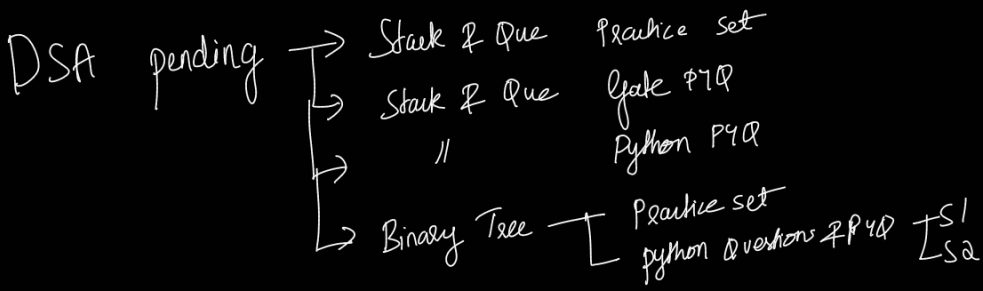 DSA pending → Stack & Que Practice set
→ Stack & Que Gate PYQ
→ " Python PYQ
→ Binary Tree Practice set
python Questions & PYQ S1
S2